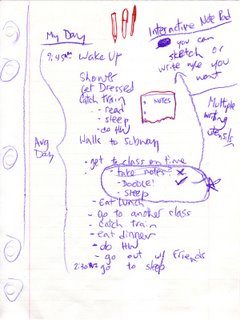 My Day
Interactive Note Pad
you can
sketch or
write note you
want
Wake Up
Shower
Get Dressed
Catch train
- read
- sleep
- do HW
NOTES
Multiple
writing
Avg
Day
Walk to subway
- get to class on time
- take notes
- DOODLE!
- sleep
- eat lunch
- go to another class
- catch train
- eat dinner
- do HW
- go out w/ friends
go to sleep